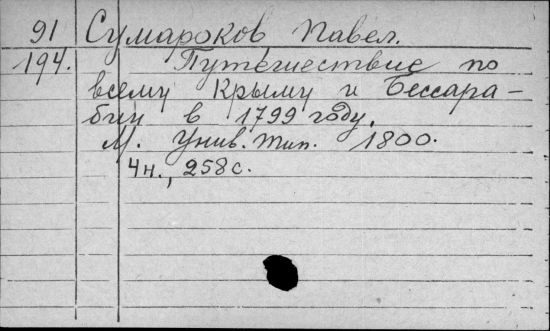 91 Сумароков Павел.
194. Путешествие по
всему Крыму и Бессара-
бии в 1799 году.
М. Унив. тип. 1800.
4н., 258 с.